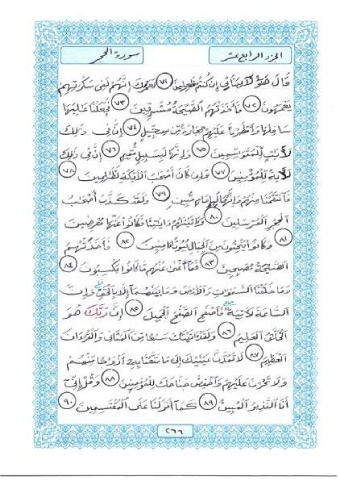 الجزء الرابع عشر
سورة الحجر
قال هؤلاء بناتي إن كنتم فاعلين ٧١ لعمرك إنهم لفي سكرتهم
يعمهون ٧٢ فأخذتهم الصيحة مشرقين ٧٣ فجعلنا عاليها
سافلها وأمطرنا عليهم حجارة من سجيل ٧٤ إن في ذلك
لآيات للمتوسمين ٧٥ وإنها لبسبيل مقيم ٧٦ إن في ذلك
لآية للمؤمنين ٧٧ وإن كان أصحاب الأيكة لظالمين ٧٨
فانتقمنا منهم وإنهما لبإمام مبين ٧٩ ولقد كذب أصحاب
الحجر المرسلين ٨٠ وآتيناهم آياتنا فكانوا عنها معرضين
٨١ وكانوا ينحتون من الجبال بيوتا آمنين ٨٢ فأخذتهم
الصيحة مصبحين ٨٣ فما أغنى عنهم ما كانوا يكسبون ٨٤
وما خلقنا السموات والأرض وما بينهما إلا بالحق وإن
الساعة لآتية فاصفح الصفح الجميل ٨٥ إن ربك هو
الخلاق العليم ٨٦ ولقد آتيناك سبعا من المثاني والقرآن
العظيم ٨٧ لا تمدن عينيك إلى ما متعنا به أزواجا منهم
ولا تحزن عليهم واخفض جناحك للمؤمنين ٨٨ وقل إني
أنا النذير المبين ٨٩ كما أنزلنا على المقتسمين ٩٠
٢٦٦